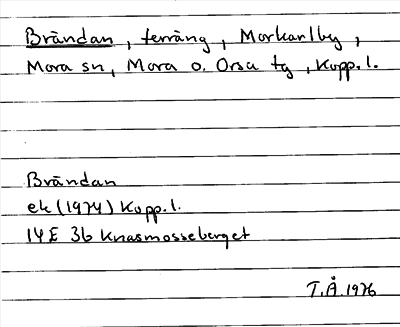 Brändan, terräng, Morkarlby,
Mora sn, Mora o. Orsa tg, Kopp.l.
Brändan
ek (1974) Kopp.l.
14E 3b Knasmosseberget
T.Å.1976